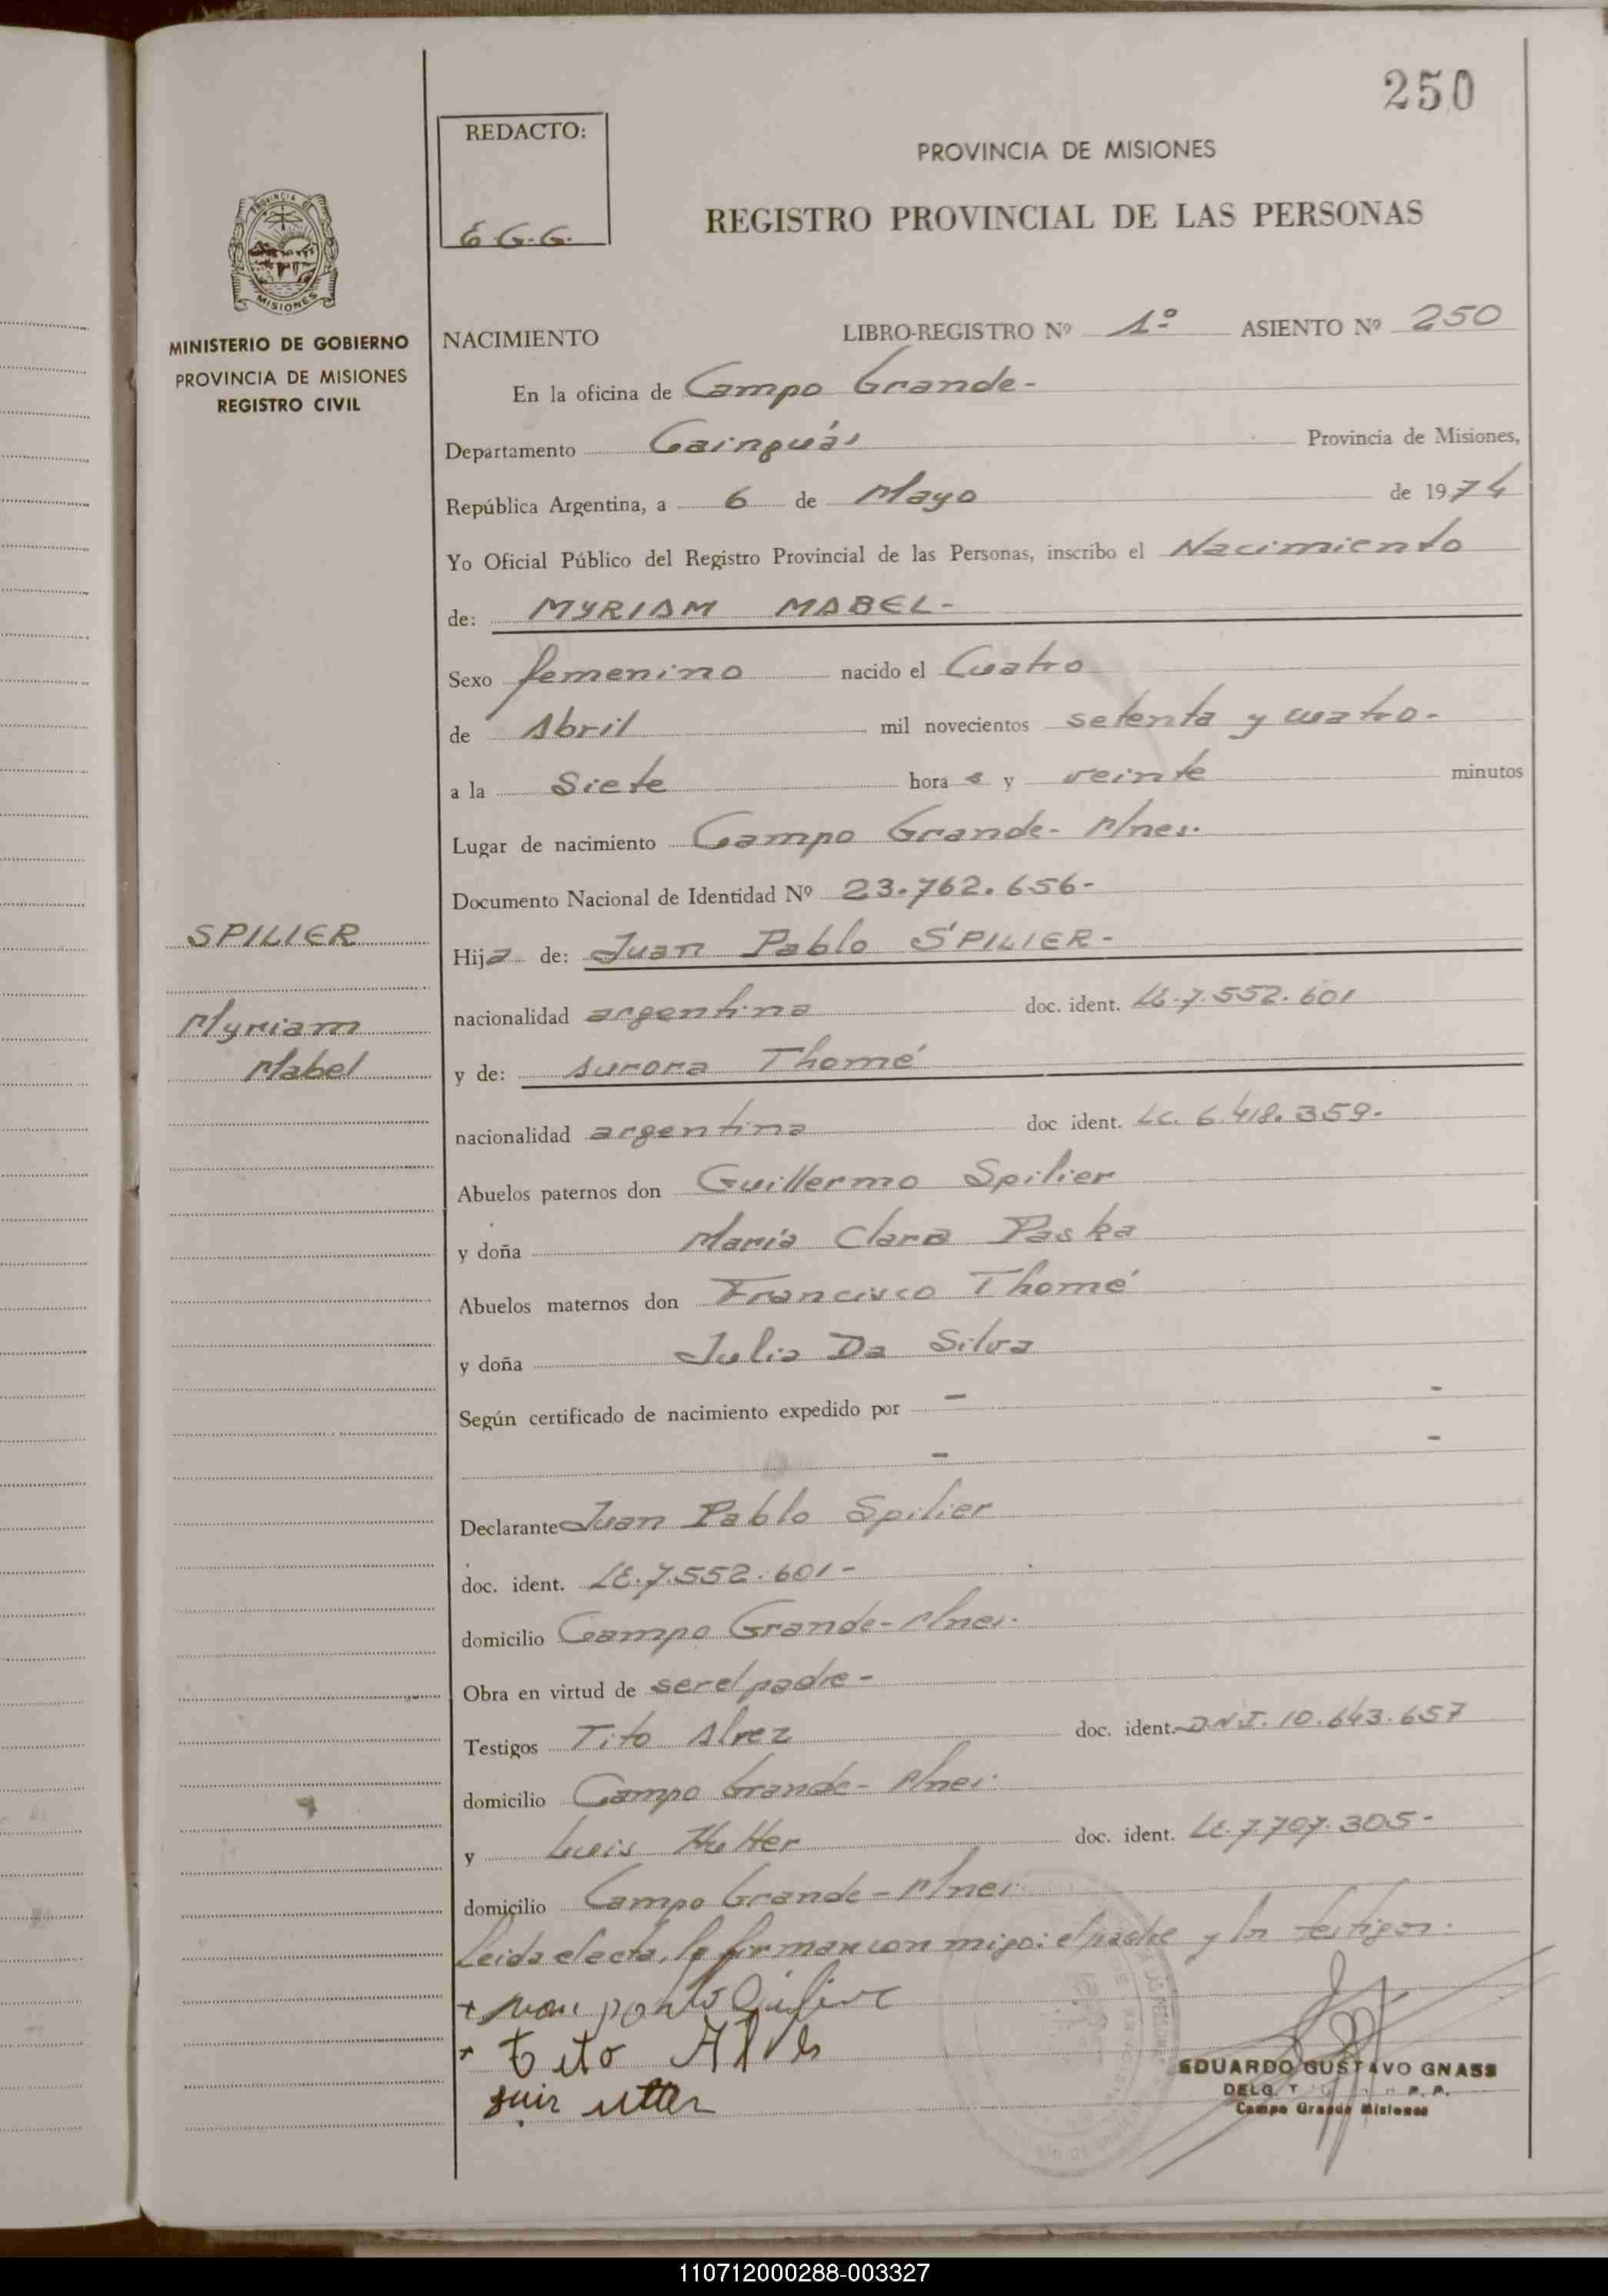 250
REDACTO:
E.G.G.
PROVINCIA DE MISIONES
REGISTRO PROVINCIAL DE LAS PERSONAS
PROVINCIA DE
MISIONES
MINISTERIO DE GOBIERNO
PROVINCIA DE MISIONES
REGISTRO CIVIL
NACIMIENTO LIBRO-REGISTRO Nº 1º ASIENTO Nº 250
En la oficina de Campo Grande-
Departamento Cainguás Provincia de Misiones,
República Argentina, a 6 de Mayo de 1974
Yo Oficial Público del Registro Provincial de las Personas, inscribo el Nacimiento
de: MYRIAM MABEL-
Sexo femenino nacido el Cuatro
de Abril mil novecientos setenta y cuatro-
a la Siete hora s y veinte minutos
Lugar de nacimiento Campo Grande- Mnes.
Documento Nacional de Identidad Nº 23.762.656-
SPILIER
Hija de: Juan Pablo SPILIER-
Myriam
Mabel
nacionalidad argentina doc. ident. LE.7.552.601
y de: Aurora Thomé
nacionalidad argentina doc ident. LC. 6.418.359-
Abuelos paternos don Guillermo Spilier
y doña María Clara Paska
Abuelos maternos don Francisco Thomé
y doña Julia Da Silva
Según certificado de nacimiento expedido por - -
- -
Declarante Juan Pablo Spilier
doc. ident. LE.7.552.601-
domicilio Campo Grande- Mnes.
Obra en virtud de ser el padre-
Testigos Tito Alvez doc. ident. D.N.I. 10.643.657
domicilio Campo Grande- Mnes.
y Luis Hutter doc. ident. LE.7.707.305-
domicilio Campo Grande- Mnes.
Leida el acta, la firman con migo: el padre y los testigos.
+ Juan pablo
+ tito Alves
Luis utter
EDUARDO GUSTAVO GNASS
DELG. T
Campo Grande Misiones
110712000288-003327